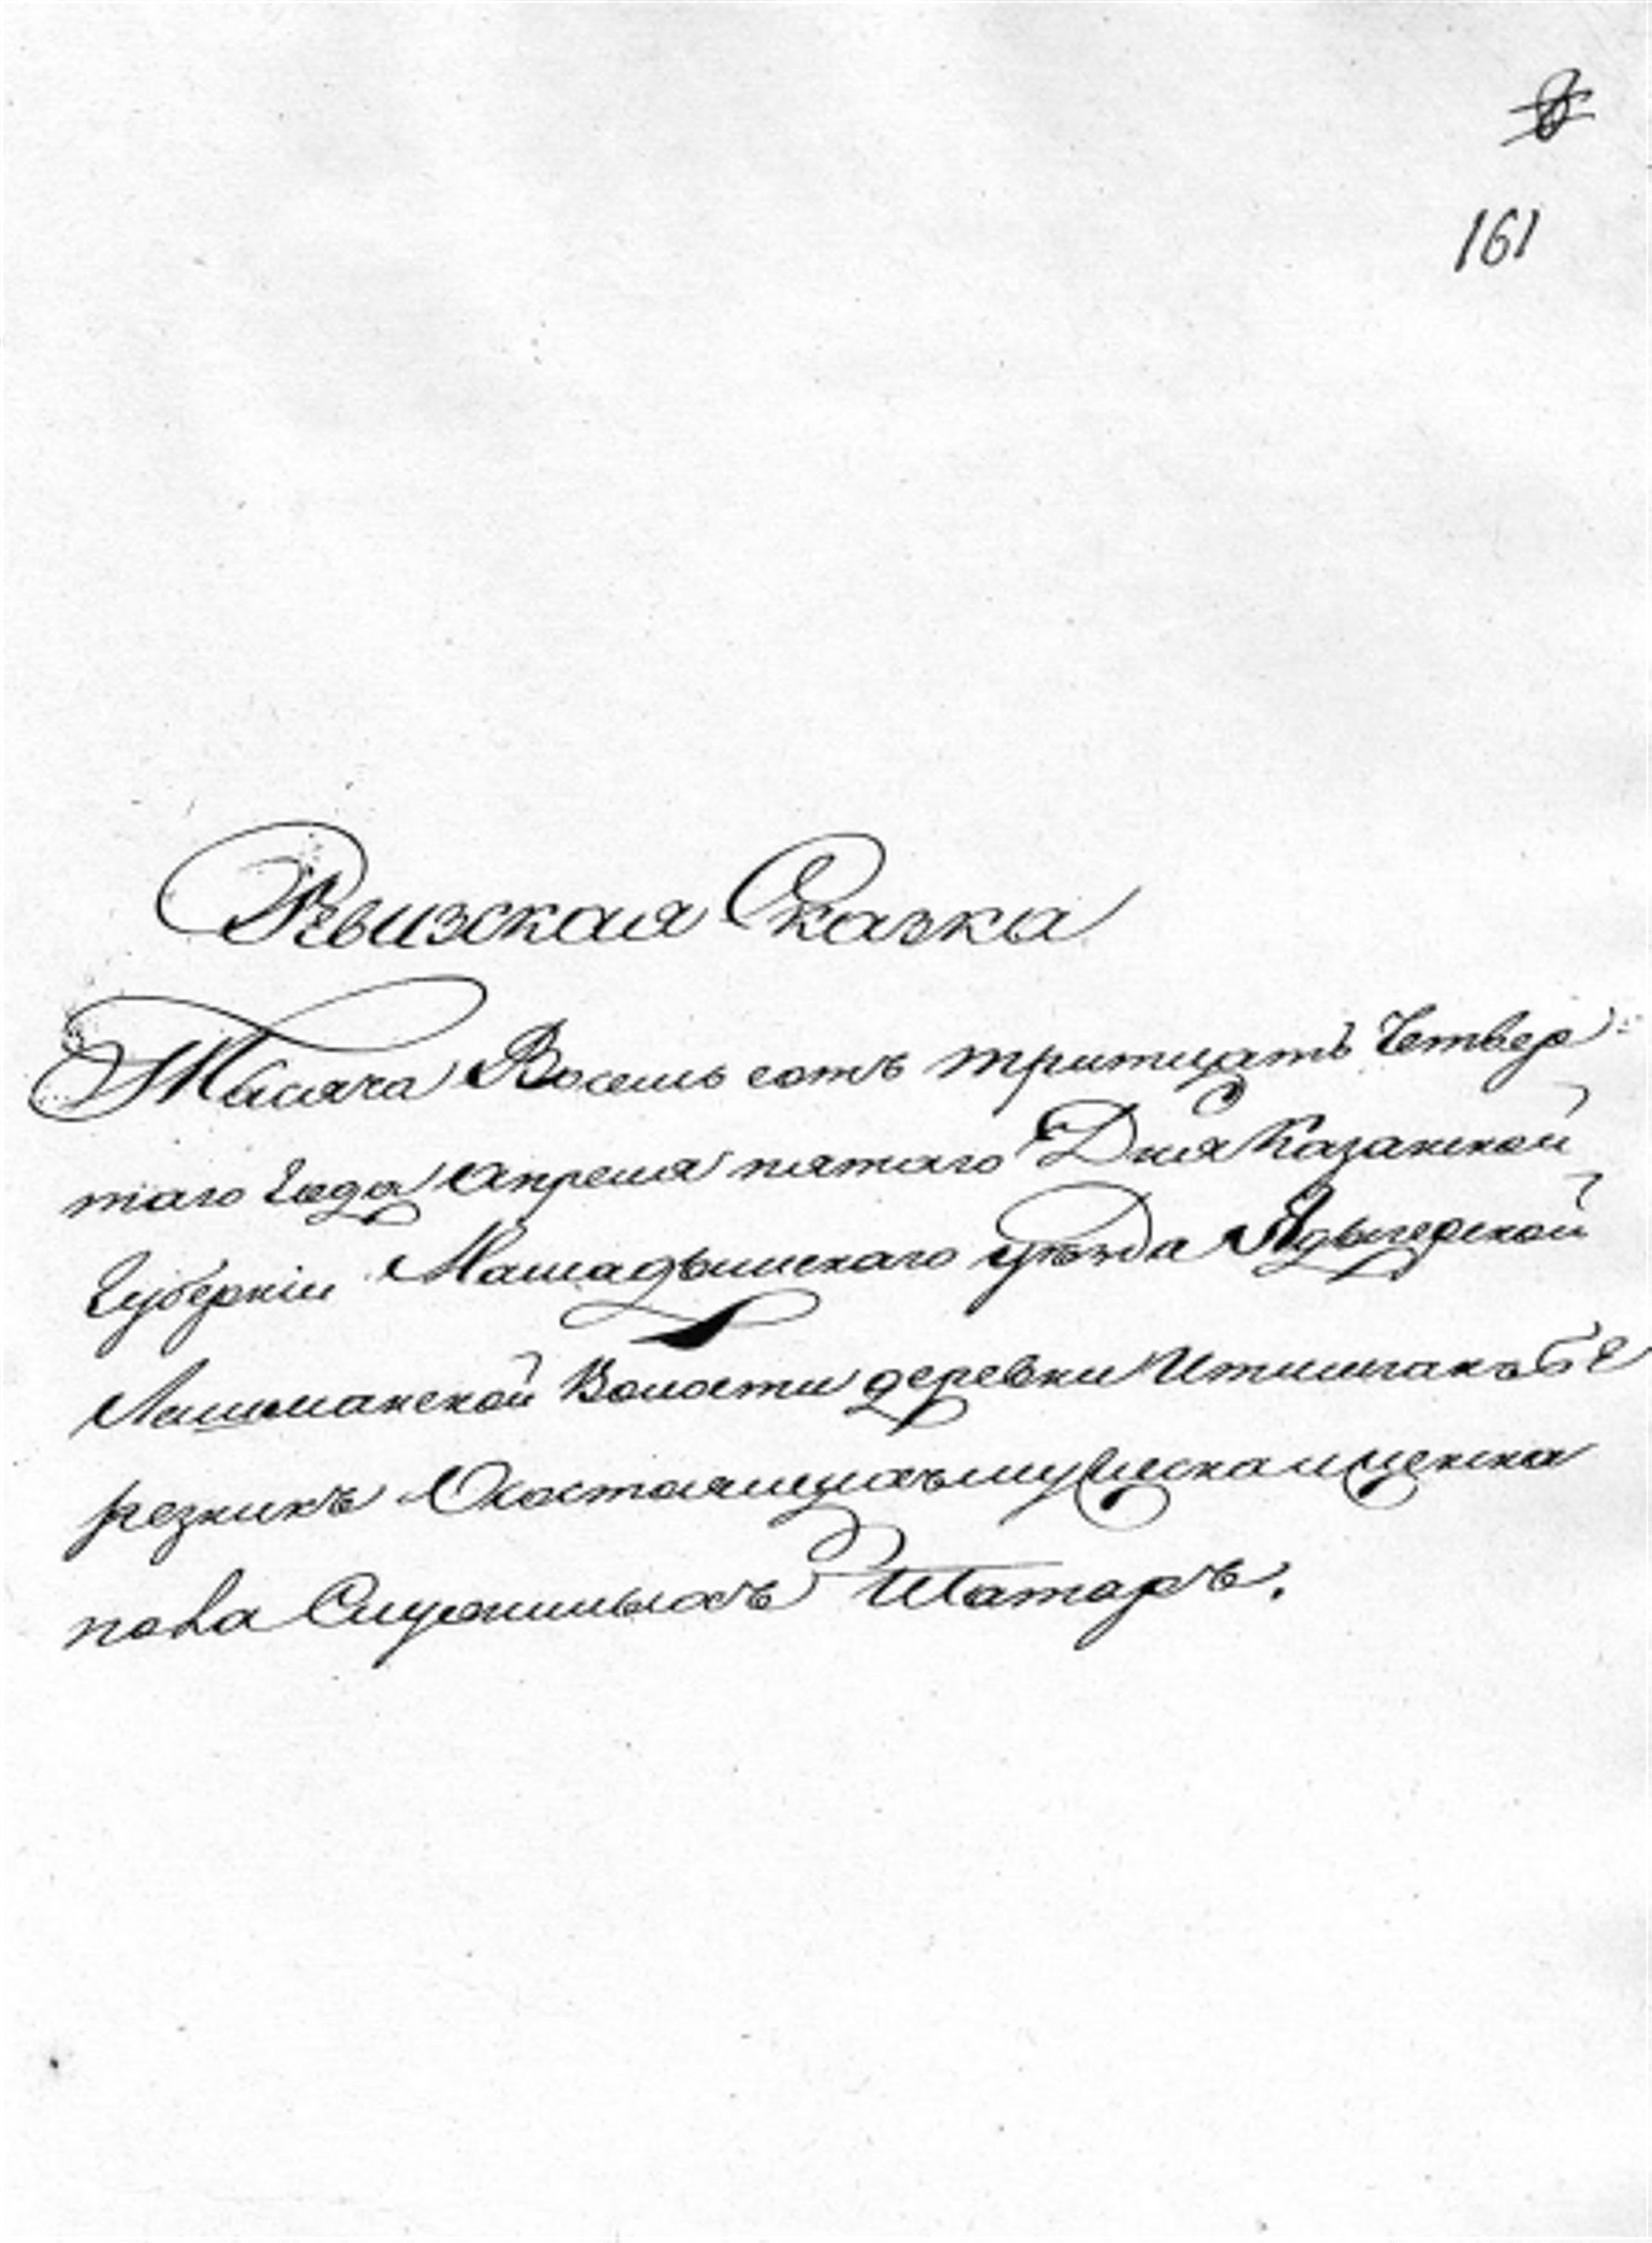 161
Ревизская Сказка
Тысяча Восемь сотъ тритцать Четвер
таго Года Апреля пятаго Дня Казанской
Губерніи Мамадышскаго уѣзда Ядыгерской
Лашманской Волости деревни
резникъ О состоящихъ мужеска и женска
пола Служилыхъ Татаръ.